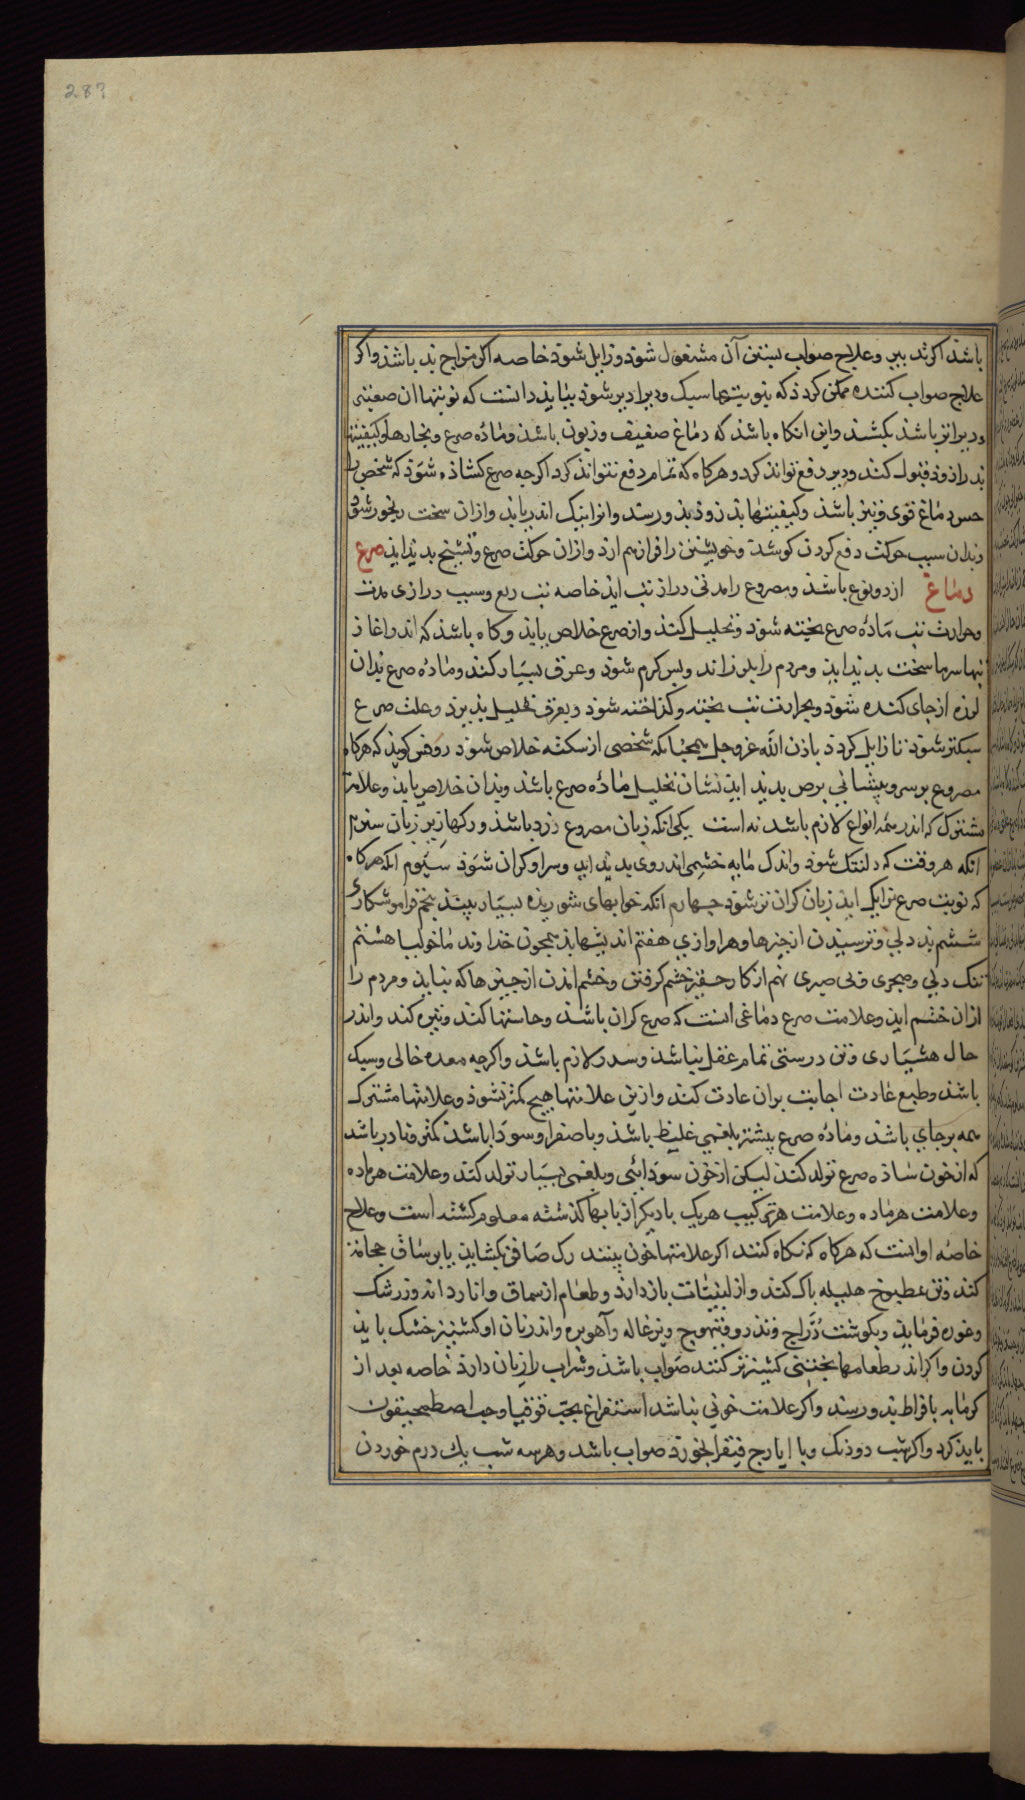 283
باشذ اکر تدبیر وعلاج صواب بستن آن مشغول شود زایل شود خاصه اکر مزاج بد باشذ واکر
علاج صواب کننده ممکن کردد که نوبتها سبک ودیرادیر شود بباید دانست که نوبتها ان صفتی
ودیرانر باشد بکشد واین انکاه باشد که دماغ ضعیف وزبون باشد ومادّه صرع وبخارها وکیفیتها
بد را زود قبول کند ودیر دفع تواند کرد وهرکاه که تمام دفع نتواند کرد اکرچه صرع کشاذه شود که شخص را
حس دماغ قوی وتیز باشد وکیفیتهاء بد زود بذو رسد وانرا نیک اندر یابد وازان سخت رنجور شود
وبدان سبب حرکت دفع کردن کوشد وخویشتن را فراز هم ارد وازان حرکت صرع وتشنج بدید اید صرع
دماغ از دو نوع باشد ومصروع را مدتی دراز تب اید خاصه تب ربع وسبب درازی مدت
وحرارت تب مادّه صرع پخته شود وتحلیل کند واز صرع خلاص یابد وکاه باشد که اندر اغاز
تبها سرما سخت بدید اید ومردم را بلرزاند وپس کرم شود وعرق بسیار کند ومادّه صرع بدان
لرزه از جای کنده شود وبحرارت تب پخته وکداخته شود وبعرق تحلیل پذیرد وعلت صرع
سبکتر شود تا زایل کردد باذن الله عزوجل همچنانکه شخصی از سکته خلاص شود روفس کوید که هرکاه
مصروع بر سر وپیشانی برص بدید اید نشان تحلیل مادّه صرع باشد وبدان خلاص یابد وعلامت
مشترک که اندر همه انواع لازم باشد نه است یکی انکه زبان مصروع زرد باشد ورکها زیر زبان سبز
انکه هر وقت که دلتنک شود واندک مایه خشمی اندر وی بدید اید وسر او کران شود سیوم انکه هرکاه
که نوبت صرع نزدیک اید زبان کران تر شود چهارم انکه خوابهای شوریذه بسیار بیند پنجم فراموشکاری
ششم بد دلی وترسیدن از چیزها وهر اوازی هفتم اندیشهاء بد همچون خداوند مالیخولیا هشتم
تنک دلی وضجری وبی صبری نهم از کار حقیر خشم کرفتن وخشم اندن از چیزها که نباید ومردم را
ازان خشم اید وعلامت صرع دماغی انست که صرع کران باشد وحاستها کند وتیره کند واندر
حال هشیاری وتن درستی تمام عقل نباشد وسدر لازم باشد واکرچه معده خالی وسبک
باشد وطبع عادت اجابت بران عادت کند وازین علامتها هیچ کمتر نشود وعلامتهاء مشترک
همه بر جای باشد ومادّه صرع پیشتر بلغمی غلیظ باشد وبا صفرا وسودا باشد کمتر ونادر باشد
که از خون ساذه صرع تولد کند لیکن از خون سودایی وبلغمی بسیار تولد کند وعلامت هر ماده
وعلامت هر ماده وعلامت هر ترکیب هریک با دیکر از بابها کذشته معلوم کشته است وعلاج
خاصه او انست که هرکاه که نکاه کنند اکر علامتها خون بینند رک صافن بکشایند یا بر ساق حجامت
کنند وتن بمطبوخ هلیله پاک کنند واز لبنیات باز دارند وطعام از سماق وانار دانه وزرشک
وغوره فرمایند وبکوشت دُرّاج وتذرو وتیهوج وبزغاله وآهوبره واندر یان او کشنیز خشک باید
کردن واکر اندر طعامها پختنی کشنیز تر کنند صواب باشد وشراب را زیان دارد خاصه بعد از
کرمابه بافراط بدو رسد واکر علامت خونی نباشد استفراغ بحب قوقیا وحب اصطمخیقون
باید کرد واکر شب دو دنک وبا ایارج فیقرا بخورند صواب باشد وهر سه شب یك درم خوردن